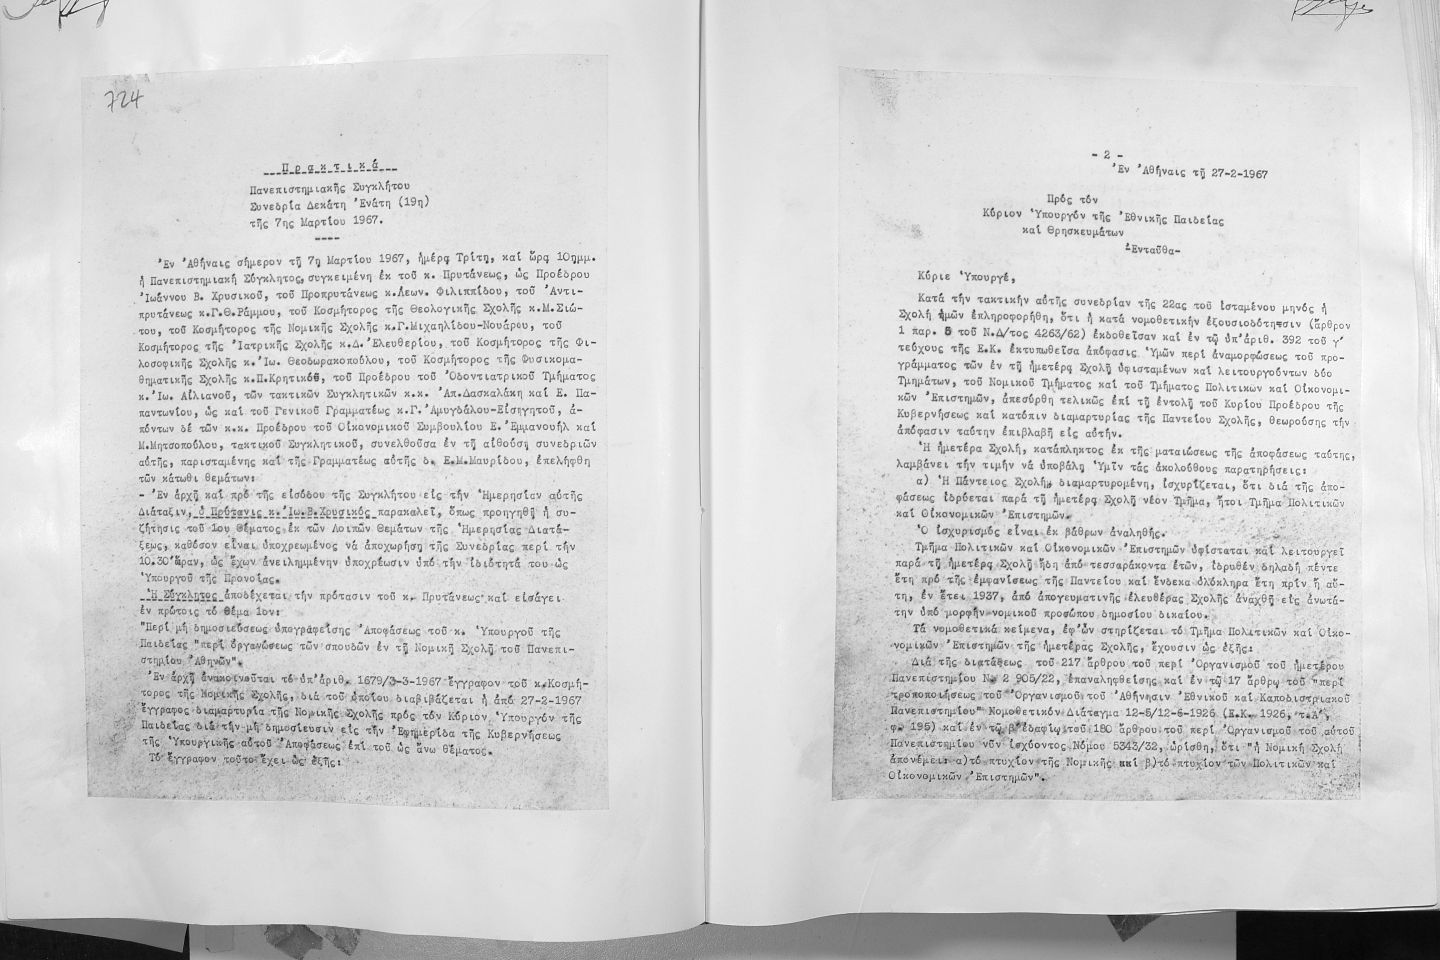 724
Πρακτικά
Πανεπιστημιακῆς Συγκλήτου
Συνεδρία Δεκάτη Ἐνάτη (19η)
τῆς 7ης Μαρτίου 1967.
Ἐν Ἀθήναις σήμερον τῇ 7ῃ Μαρτίου 1967, ἡμέρᾳ Τρίτῃ, καί ὥρᾳ 10ημμ.
ἡ Πανεπιστημιακή Σύγκλητος, συγκειμένη ἐκ τοῦ κ. Πρυτάνεως, ὡς Προέδρου
Ἰωάννου Β. Χρυσικοῦ, τοῦ Προπρυτάνεως κ.Λεων. Φιλιππίδου, τοῦ Ἀντι-
πρυτάνεως κ.Γ.Θ.Ράμμου, τοῦ Κοσμήτορος τῆς Θεολογικῆς Σχολῆς κ.Μ.Σιώ-
του, τοῦ Κοσμήτορος τῆς Νομικῆς Σχολῆς κ.Γ.Μιχαηλίδου-Νουάρου, τοῦ
Κοσμήτορος τῆς Ἰατρικῆς Σχολῆς κ.Δ.Ἐλευθερίου, τοῦ Κοσμήτορος τῆς Φι-
λοσοφικῆς Σχολῆς κ.Ἰω. Θεοδωρακοπούλου, τοῦ Κοσμήτορος τῆς Φυσικομα-
θηματικῆς Σχολῆς κ.Π.Κρητικοῦ, τοῦ Προέδρου τοῦ Ὀδοντιατρικοῦ Τμήματος
κ.Ἰω. Αἰλιανοῦ, τῶν τακτικῶν Συγκλητικῶν κ.κ. Ἀπ.Δασκαλάκη καί Ε. Πα-
παντωνίου, ὡς καί τοῦ Γενικοῦ Γραμματέως κ.Γ.Ἀμυγδάλου-Εἰσηγητοῦ, ἀ-
πόντων δέ τῶν κ.κ. Προέδρου τοῦ Οἰκονομικοῦ Συμβουλίου Ε.Ἐμμανουήλ καί
Μ.Μητσοπούλου, τακτικοῦ Συγκλητικοῦ, συνελθοῦσα ἐν τῇ αἰθούσῃ συνεδριῶν
αὐτῆς, παρισταμένης καί τῆς Γραμματέως αὐτῆς δ. Ε.Μ.Μαυρίδου, ἐπελήφθη
τῶν κάτωθι θεμάτων:
- Ἐν ἀρχῇ καί πρό τῆς εἰσόδου τῆς Συγκλήτου εἰς τήν Ἡμερησίαν αὐτῆς
Διάταξιν, ὁ Πρύτανις κ.Ἰω.Β.Χρυσικός παρακαλεῖ, ὅπως προηγηθῇ ἡ συ-
ζήτησις τοῦ 1ου Θέματος ἐκ τῶν Λοιπῶν Θεμάτων τῆς Ἡμερησίας Διατά-
ξεως, καθόσον εἶναι ὑποχρεωμένος νά ἀποχωρήσῃ τῆς Συνεδρίας περί τήν
10.30 ὥραν, ὡς ἔχων ἀνειλημμένην ὑποχρέωσιν ὑπό τήν ἰδιότητά του ὡς
Ὑπουργοῦ τῆς Προνοίας.
Ἡ Σύγκλητος ἀποδέχεται τήν πρότασιν τοῦ κ. Πρυτάνεως καί εἰσάγει
ἐν πρώτοις τό θέμα 1ον:
"Περί μή δημοσιεύσεως ὑπογραφείσης Ἀποφάσεως τοῦ κ. Ὑπουργοῦ τῆς
Παιδείας "περί ὀργανώσεως τῶν σπουδῶν ἐν τῇ Νομικῇ Σχολῇ τοῦ Πανεπι-
στημίου Ἀθηνῶν".
Ἐν ἀρχῇ ἀνακοινοῦται τό ὑπ'ἀριθ. 1679/3-3-1967 ἔγγραφον τοῦ κ.Κοσμή-
τορος τῆς Νομικῆς Σχολῆς, διά τοῦ ὁποίου διαβιβάζεται ἡ ἀπό 27-2-1967
ἔγγραφος διαμαρτυρία τῆς Νομικῆς Σχολῆς πρός τόν Κύριον Ὑπουργόν τῆς
Παιδείας διά τήν μή δημοσίευσιν εἰς τήν Ἐφημερίδα τῆς Κυβερνήσεως
τῆς Ὑπουργικῆς αὐτοῦ Ἀποφάσεως ἐπί τοῦ ὡς ἄνω θέματος.
Τό ἔγγραφον τοῦτο ἔχει ὡς ἑξῆς:
- 2 -
Ἐν Ἀθήναις τῇ 27-2-1967
Πρός τόν
Κύριον Ὑπουργόν τῆς Ἐθνικῆς Παιδείας
καί Θρησκευμάτων
Ἐνταῦθα-
Κύριε Ὑπουργέ,
Κατά τήν τακτικήν αὐτῆς συνεδρίαν τῆς 22ας τοῦ ἱσταμένου μηνός ἡ
Σχολή ἡμῶν ἐπληροφορήθη, ὅτι ἡ κατά νομοθετικήν ἐξουσιοδότησιν (ἄρθρον
1 παρ. 5 τοῦ Ν.Δ/τος 4263/62) ἐκδοθεῖσαν καί ἐν τῷ ὑπ'ἀριθ. 392 τοῦ γ'
τεύχους τῆς Ε.Κ. ἐκτυπωθεῖσα ἀπόφασις Ὑμῶν περί ἀναμορφώσεως τοῦ προ-
γράμματος τῶν ἐν τῇ ἡμετέρᾳ Σχολῇ ὑφισταμένων καί λειτουργούντων δύο
Τμημάτων, τοῦ Νομικοῦ Τμήματος καί τοῦ Τμήματος Πολιτικῶν καί Οἰκονομι-
κῶν Ἐπιστημῶν, ἀπεσύρθη τελικῶς ἐπί τῇ ἐντολῇ τοῦ Κυρίου Προέδρου τῆς
Κυβερνήσεως καί κατόπιν διαμαρτυρίας τῆς Παντείου Σχολῆς, θεωρούσης τήν
ἀπόφασιν ταύτην ἐπιβλαβῆ εἰς αὐτήν.
Ἡ ἡμετέρα Σχολή, κατάπληκτος ἐκ τῆς ματαιώσεως τῆς ἀποφάσεως ταύτης,
λαμβάνει τήν τιμήν νά ὑποβάλῃ Ὑμῖν τάς ἀκολούθους παρατηρήσεις:
α) Ἡ Πάντειος Σχολή, διαμαρτυρομένη, ἰσχυρίζεται, ὅτι διά τῆς ἀπο-
φάσεως ἱδρύεται παρά τῇ ἡμετέρᾳ Σχολῇ νέον Τμῆμα, ἤτοι Τμῆμα Πολιτικῶν
καί Οἰκονομικῶν Ἐπιστημῶν.
Ὁ ἰσχυρισμός εἶναι ἐκ βάθρων ἀναληθής.
Τμῆμα Πολιτικῶν καί Οἰκονομικῶν Ἐπιστημῶν ὑφίσταται καί λειτουργεῖ
παρά τῇ ἡμετέρᾳ Σχολῇ ἤδη ἀπό τεσσαράκοντα ἐτῶν, ἱδρυθέν δηλαδή πέντε
ἔτη πρό τῆς ἐμφανίσεως τῆς Παντείου καί ἕνδεκα ὁλόκληρα ἔτη πρίν ἤ αὕ-
τη, ἐν ἔτει 1937, ἀπό ἀπογευματινῆς ἐλευθέρας Σχολῆς ἀναχθῇ εἰς ἀνωτά-
την ὑπό μορφήν νομικοῦ προσώπου δημοσίου δικαίου.
Τά νομοθετικά κείμενα, ἐφ'ὧν στηρίζεται τό Τμῆμα Πολιτικῶν καί Οἰκο-
νομικῶν Ἐπιστημῶν τῆς ἡμετέρας Σχολῆς, ἔχουσιν ὡς ἑξῆς:
Διά τῆς διατάξεως τοῦ 217 ἄρθρου τοῦ περί Ὀργανισμοῦ τοῦ ἡμετέρου
Πανεπιστημίου Ν. 2905/22, ἐπαναληφθείσης καί ἐν τῷ 17 ἄρθρῳ τοῦ "περί
τροποποιήσεως τοῦ Ὀργανισμοῦ τοῦ Ἀθήνησιν Ἐθνικοῦ καί Καποδιστριακοῦ
Πανεπιστημίου" Νομοθετικόν Διάταγμα 12-5/12-6-1926 (Ε.Κ. 1926, τ.Α',
φ. 195) καί ἐν τῷ β' ἐδαφίῳ τοῦ 180 ἄρθρου τοῦ περί Ὀργανισμοῦ τοῦ αὐτοῦ
Πανεπιστημίου νῦν ἰσχύοντος Νόμου 5343/32, ὡρίσθη, ὅτι "ἡ Νομική Σχολή
ἀπονέμει: α)τό πτυχίον τῆς Νομικῆς καί β)τό πτυχίον τῶν Πολιτικῶν καί
Οἰκονομικῶν Ἐπιστημῶν".